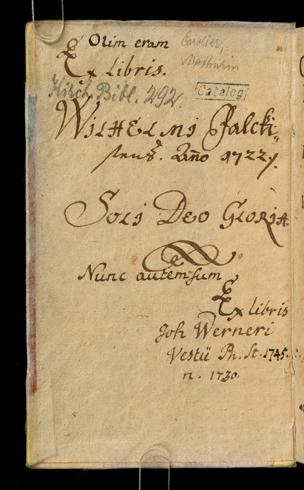 Olim eram
Ex libris.
Kirch. Bibl. 292.
Catalog
WILHELMI Falcki=
Año 1722
SOLI DEO GLORIA
Nunc autem sum
Ex libris
Joh Werneri
Vestü Ph. St. 1745.
n. 1730